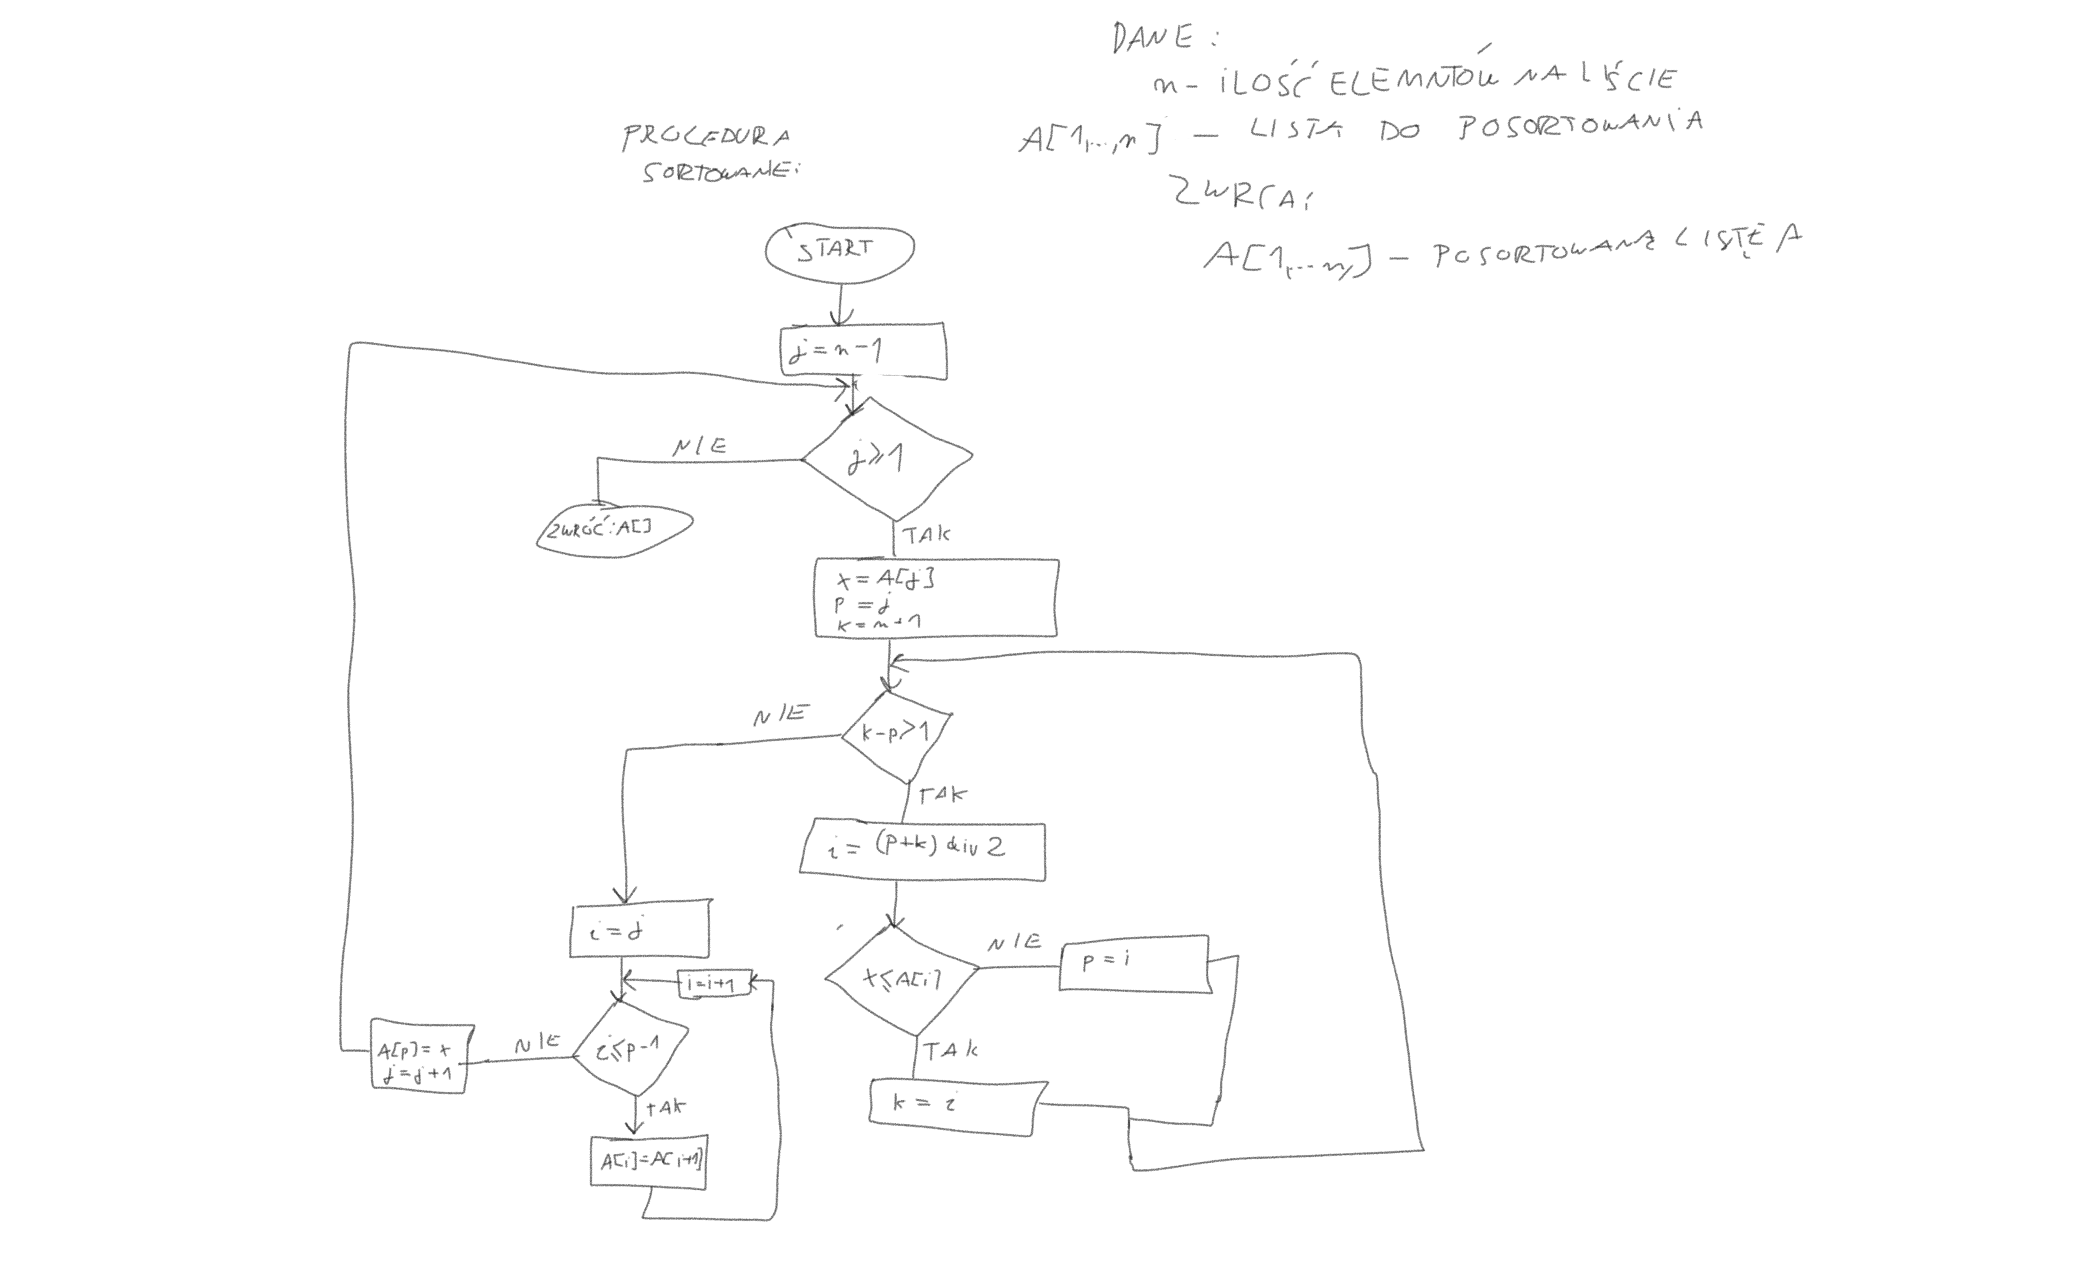 DANE:
n - ILOŚĆ ELEMNTÓW NA LIŚCIE
A[1,...,n] - LISTA DO POSORTOWANIA
ZWRCA:
A[1,...n] - POSORTOWANĄ LISTĘ A
PROCEDURA
SORTOWANE:
START
j = n-1
j ≥ 1
NIE
ZWRÓĆ: A[]
TAK
x = A[j]
p = j
k = n+1
k-p > 1
NIE
TAK
i = (p+k) div 2
i = j
x ≤ A[i]
NIE
p = i
i=i+1
i ≤ p-1
NIE
A[p] = x
j = j+1
TAK
k = i
TAK
A[i]=A[i+1]